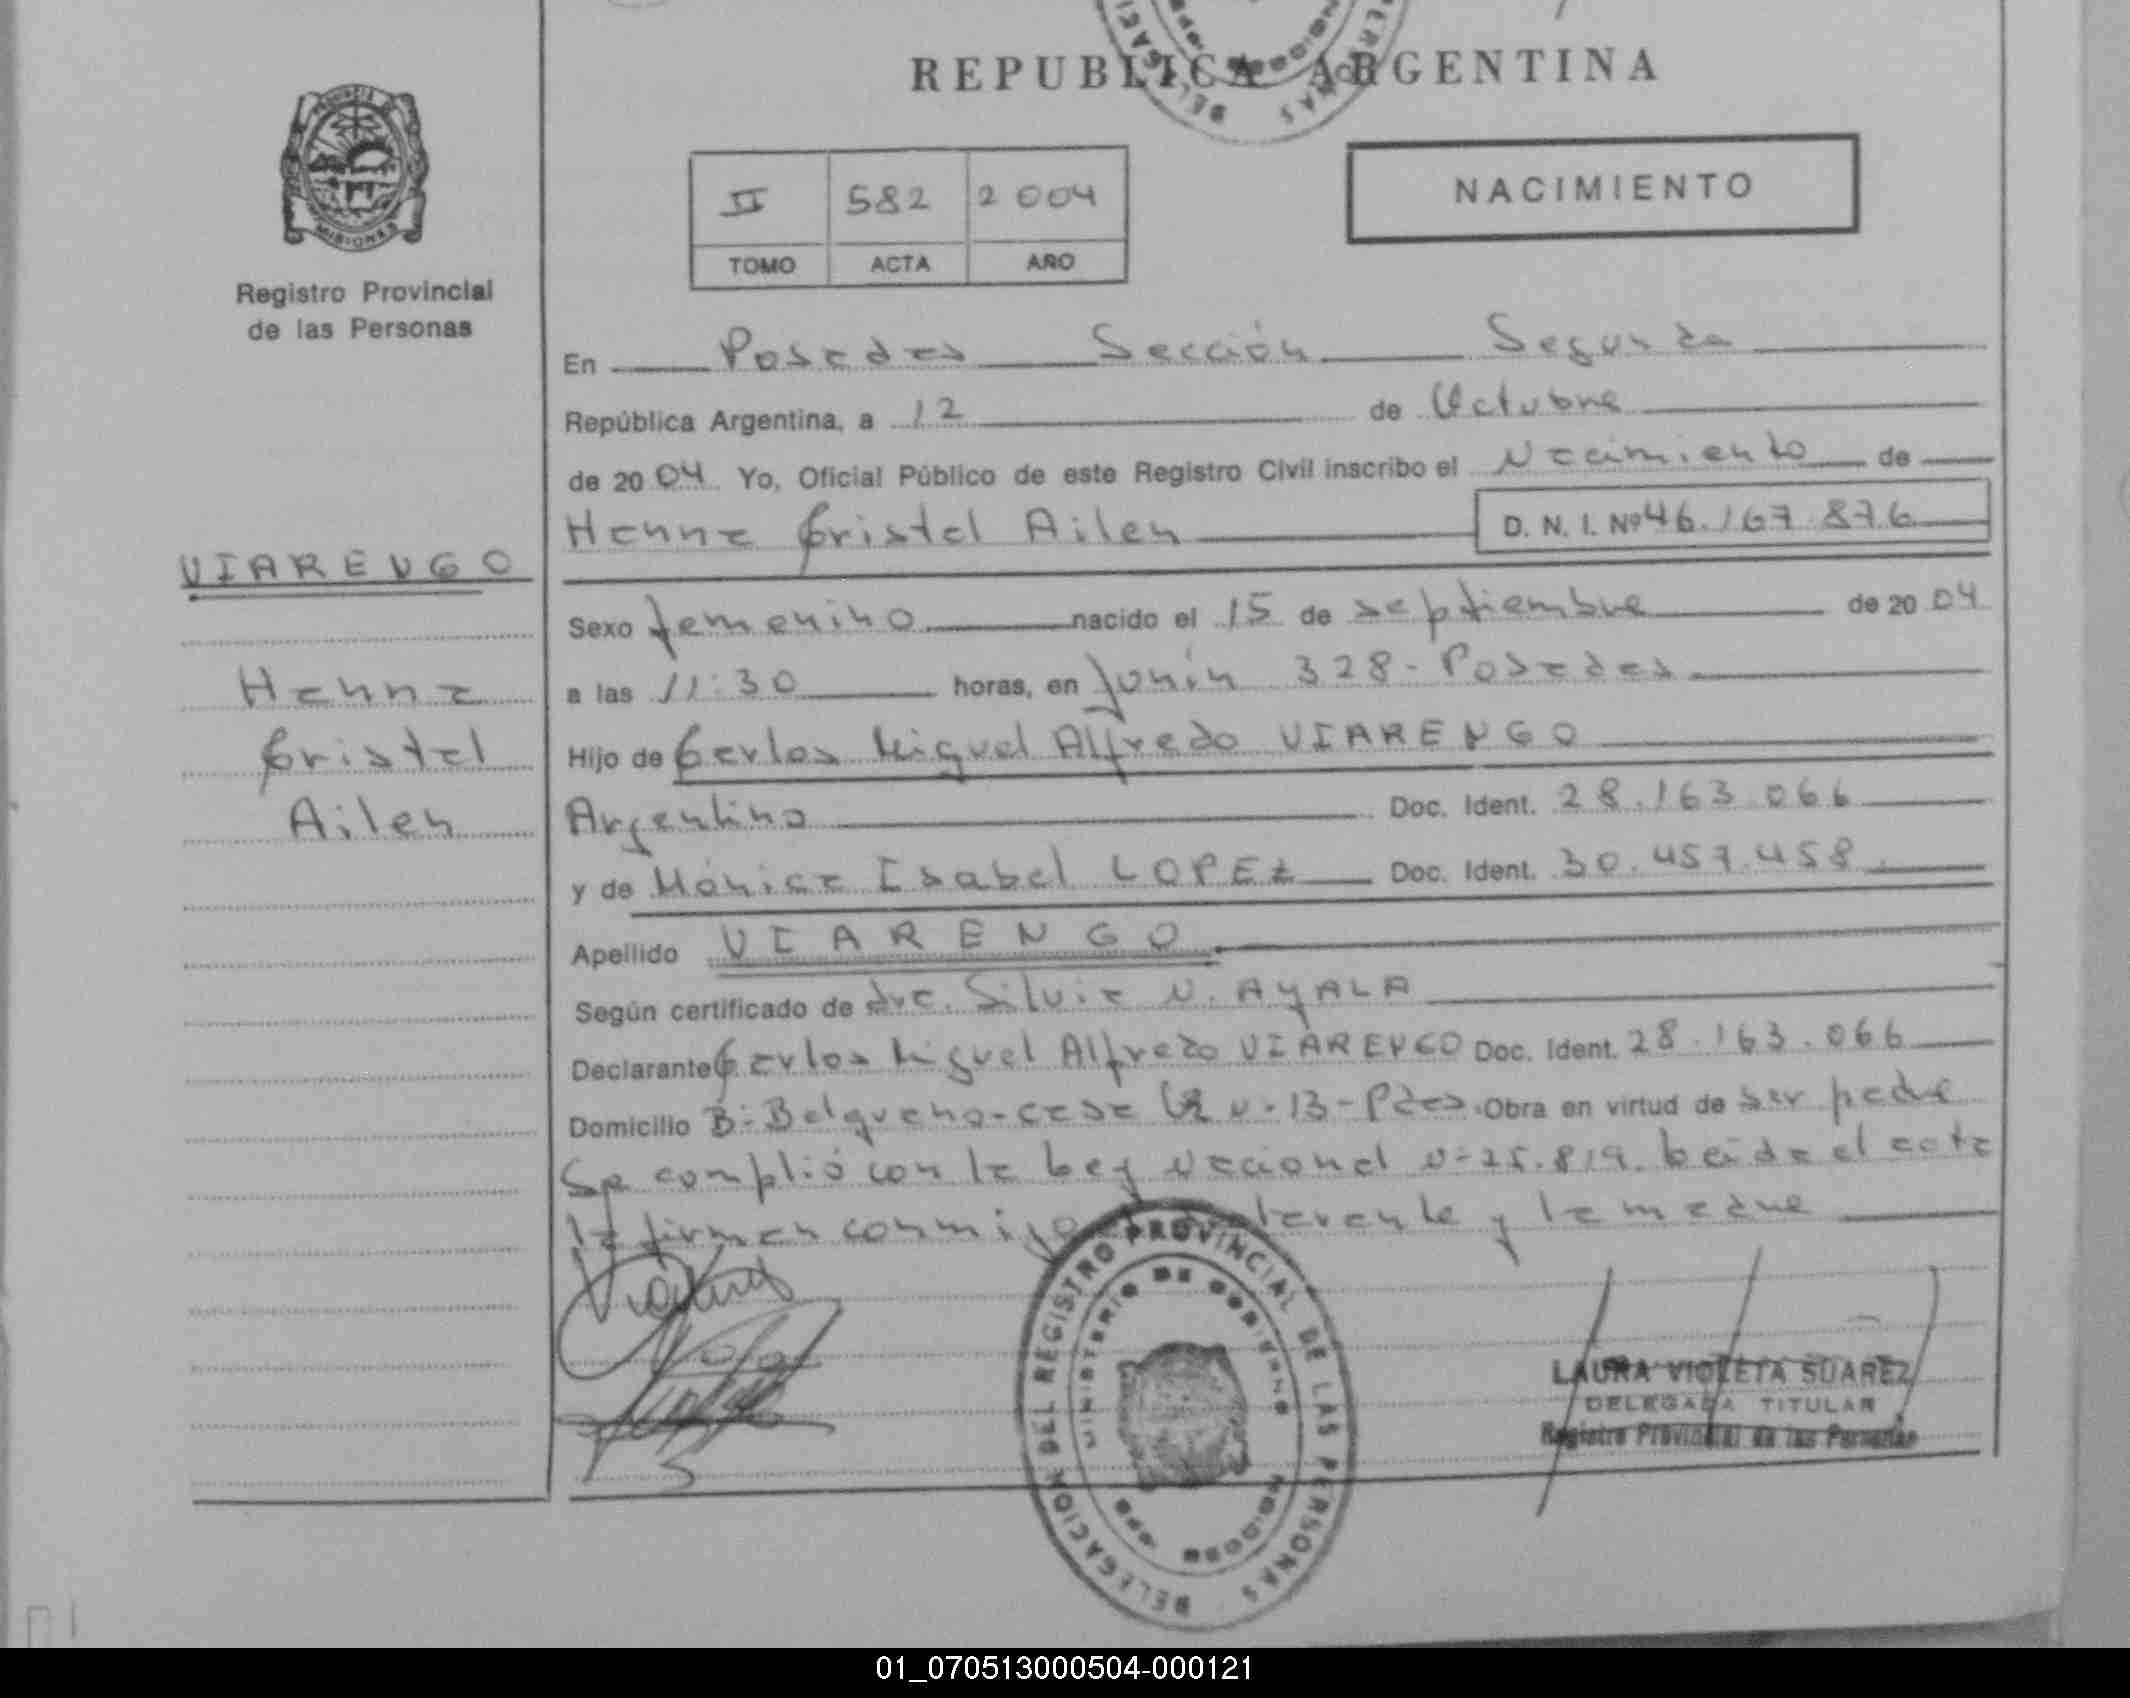 REPUBLICA ARGENTINA
MISIONES
Registro Provincial
de las Personas
II 582 2004
TOMO ACTA AÑO
NACIMIENTO
En Posadas Sección Segunda
República Argentina, a 12 de Octubre
de 2004 Yo, Oficial Público de este Registro Civil inscribo el Nacimiento de
Hanna Cristal Ailen D. N. I. Nº 46.167.876
VIARENGO
Hanna
Cristal
Ailen
Sexo femenino nacido el 15 de septiembre de 2004
a las 11:30 horas, en Junín 328-Posadas
Hijo de Carlos Miguel Alfredo VIARENGO
Argentino Doc. Ident. 28.163.066
y de Mónica Isabel LOPEZ Doc. Ident. 30.457.458
Apellido VIARENGO
Según certificado de dra. Silvia N. AYALA
Declarante Carlos Miguel Alfredo VIARENGO Doc. Ident. 28.163.066
Domicilio B: Belgrano-casa 13-Pdas. Obra en virtud de ser padre
Se complió con la Ley Nacional N-25.819. Leída el acta
la firman conmigo y la madre
DELEGACION DEL REGISTRO PROVINCIAL DE LAS PERSONAS
MINISTERIO DE GOBIERNO
LAURA VIOLETA SUAREZ
DELEGADA TITULAR
Registro Provincial de las Personas
01_070513000504-000121